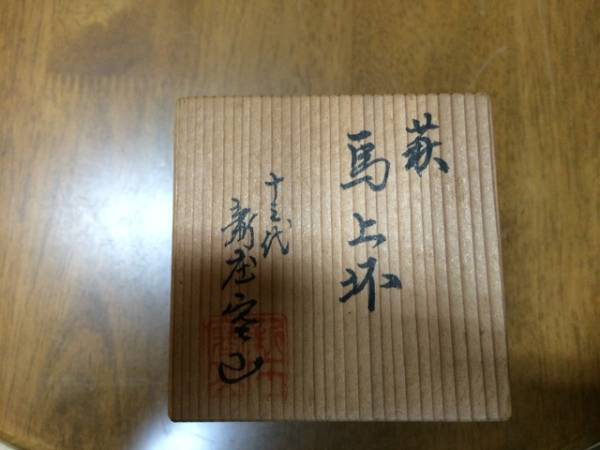 萩
馬上坏
十三代
新庄寒山